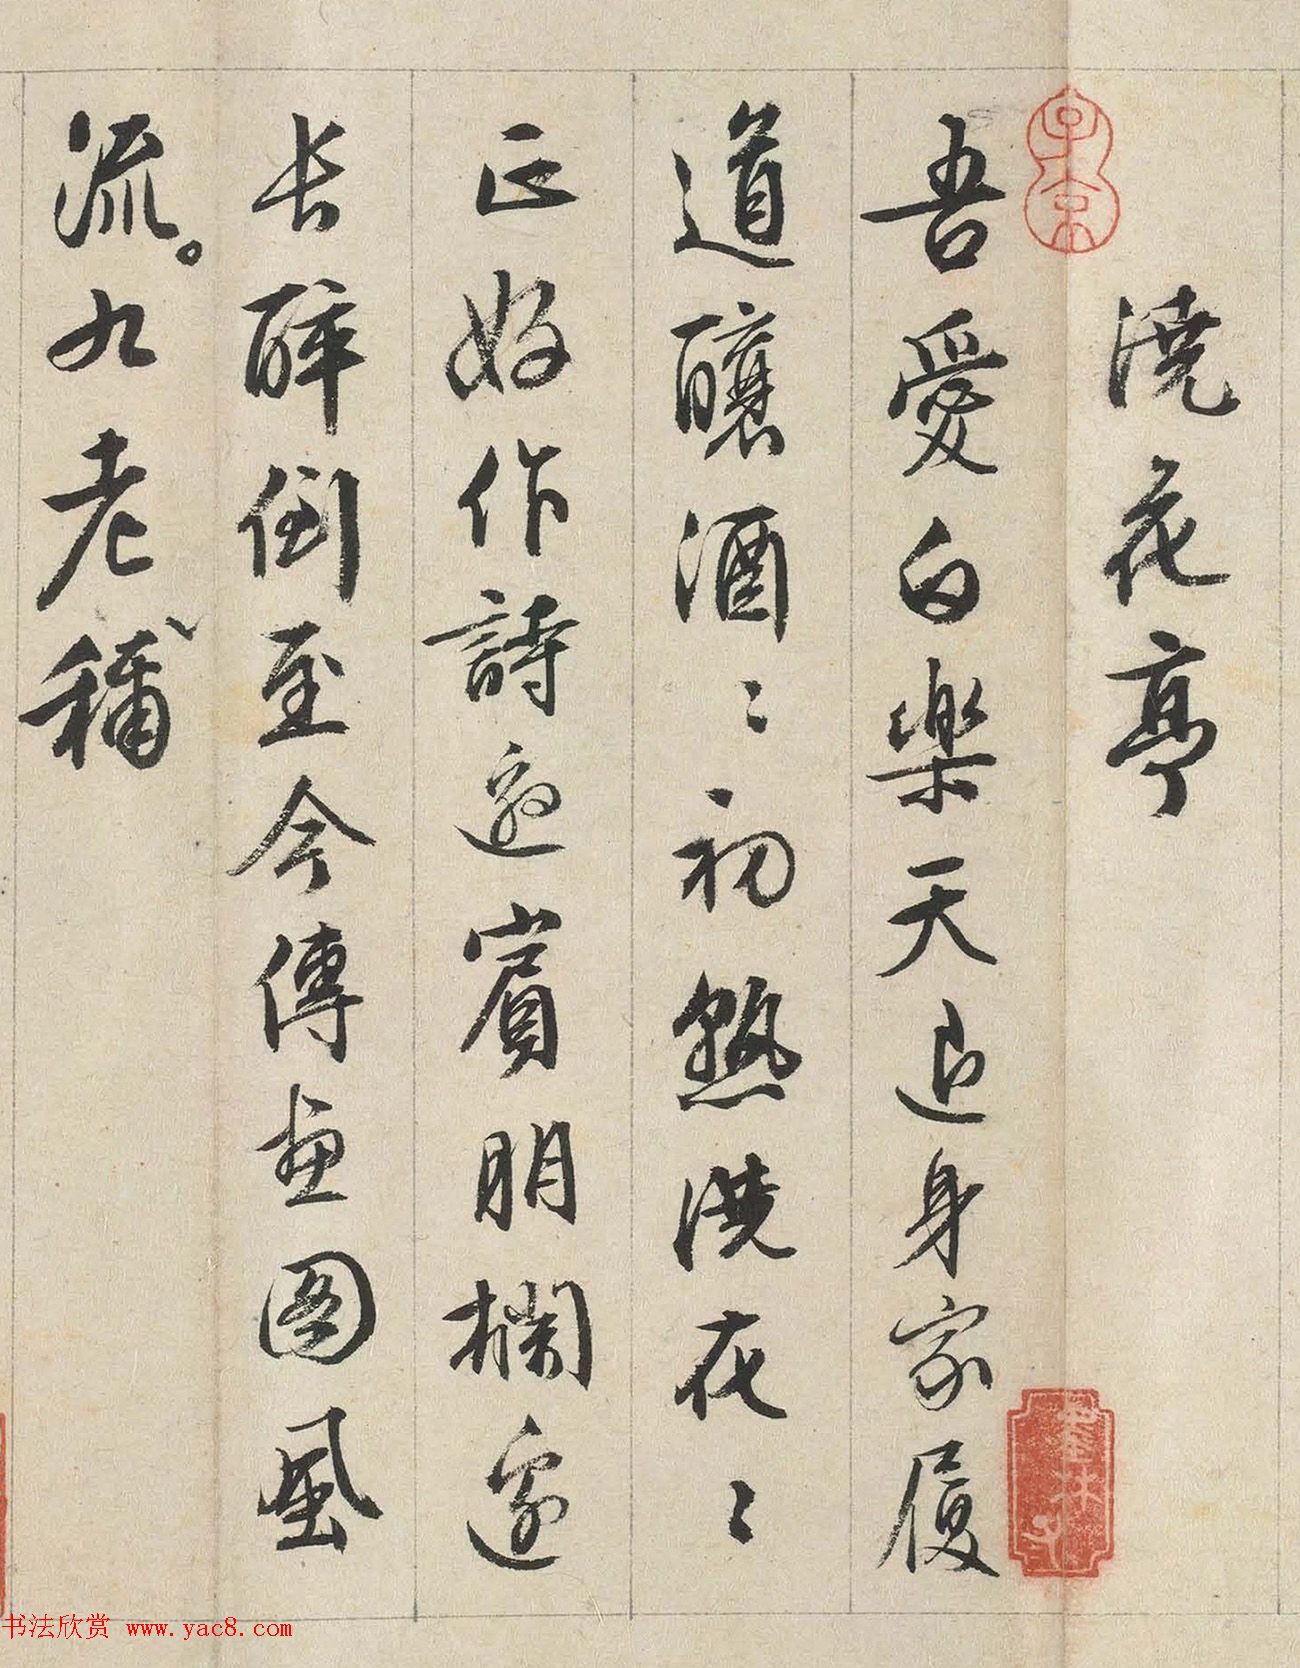 澆花亭
子京
吾愛白樂天退身家履
墨林子
道釀酒〻初熟澆花〻
正好作詩邀賓朋欄邊
長醉倒至今傳畫圖風
流。九老稱
书法欣赏 www.yac8.com